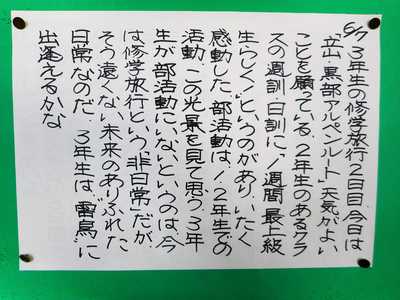 6/7 3年生の修学旅行2日目、今日は
「立山・黒部アルペンルート」天気がよい
ことを願っている。2年生のあるクラ
スの週訓・日訓に、「1週間、最上級
生らしく」というのがあり、いたく
感動した。部活動は、1、2年生での
活動、この光景を見て思う。3年
生が部活動にいないというのは、今
は修学旅行という「非日常」だが、
そう遠くない未来のありふれた
日常なのだ。3年生は、「雷鳥」に
出逢えるかな